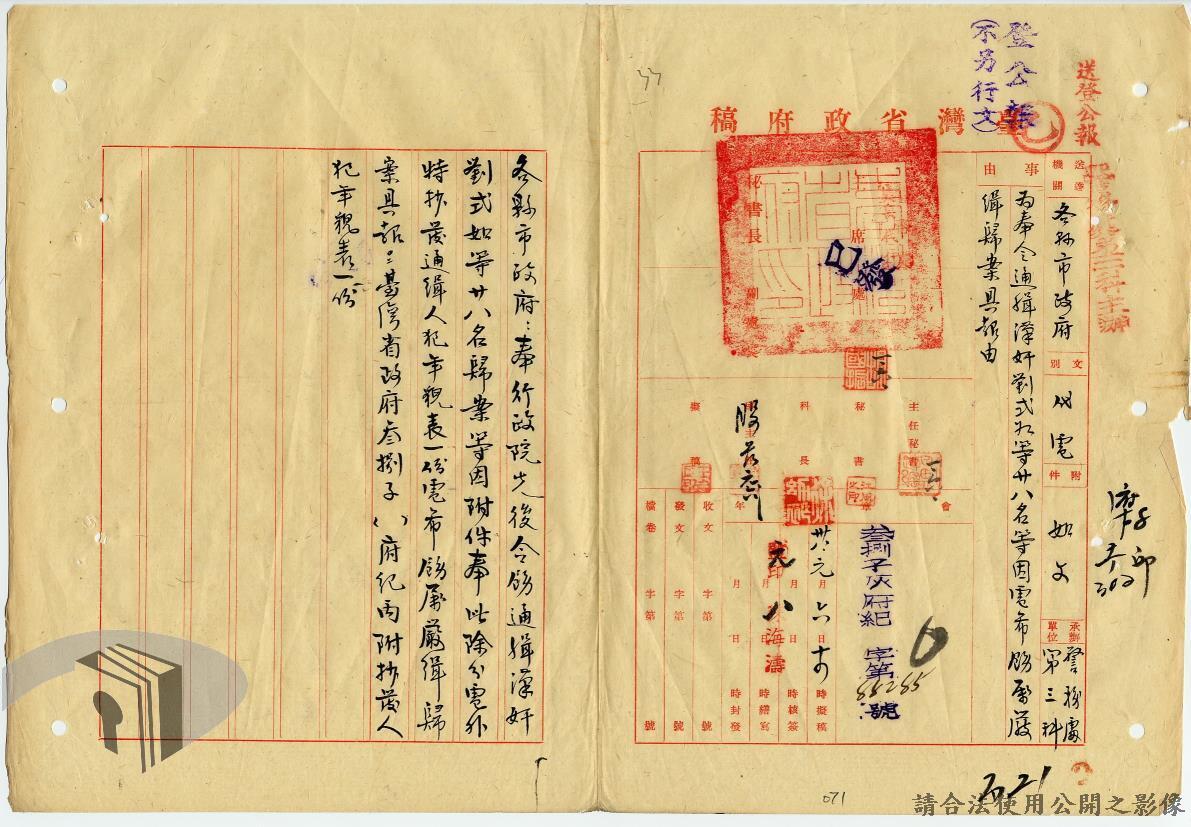 登公報
(不另行文)
送登公報
臺灣省政府稿
送達機關
各縣市政府
文別
代電
附件
如文
承辦單位
警務處第三科
事由
為奉令通緝漢奸劉式如等廿八名等因電希飭屬嚴
緝歸案具報由
秘書長
已發
主任秘書
秘書
科長
股長
擬稿
會
叁捌子灰府紀
字第
55255
號
卅八元月六日
時擬稿
月日時核簽
月日時繕寫
年月日時封發
收文字第號
發文字第號
檔卷字第號
各縣市政府:奉行政院先後令飭通緝漢奸
劉式如等廿八名歸案等因附件奉此除分電外
特抄發通緝人犯年貌表一份電希飭屬嚴緝歸
案具報臺灣省政府叁捌子( )府紀丙附抄發人
犯年貌表一份
071
請合法使用公開之影像